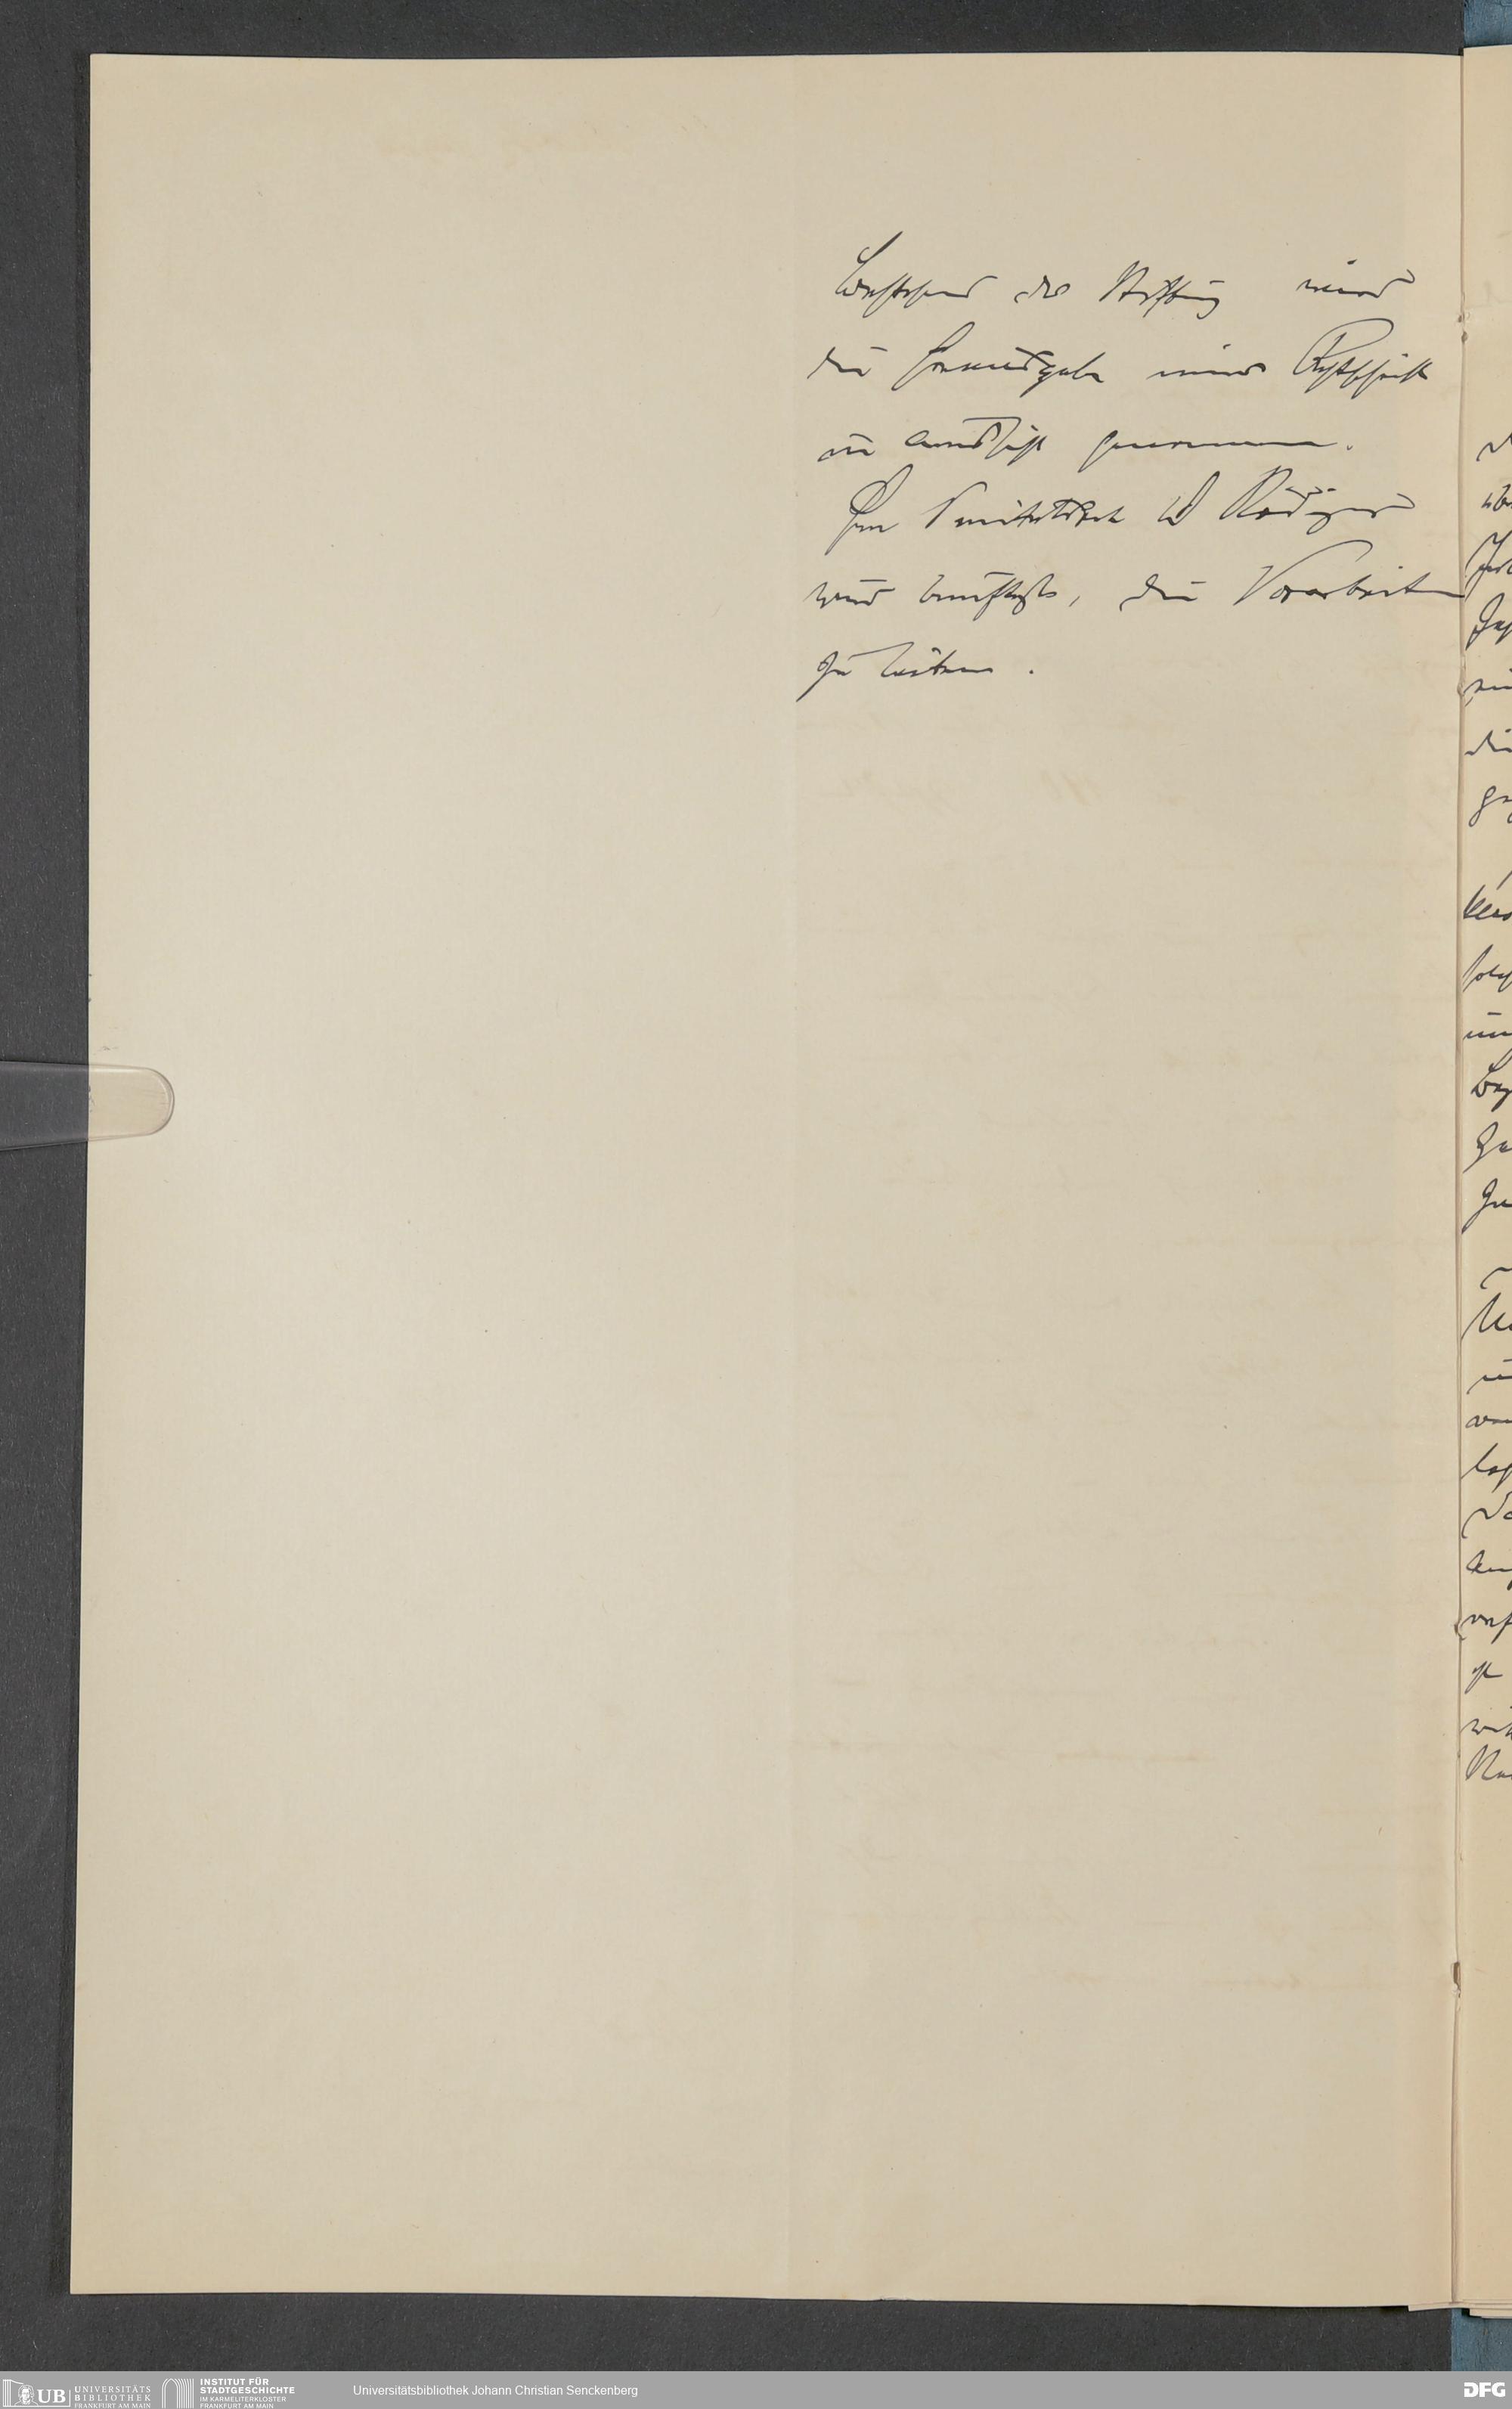 Bestehens der Stiftung wird
die Herausgabe einer Festschrift
in Aussicht genommen.
Herr Sanitätsrath Dr Rödiger
wird beauftragt, die Vorarbeiten
zu leiten.
UB UNIVERSITÄTS
BIBLIOTHEK
FRANKFURT AM MAIN
INSTITUT FÜR
STADTGESCHICHTE
IM KARMELITERKLOSTER
FRANKFURT AM MAIN
Universitätsbibliothek Johann Christian Senckenberg
DFG